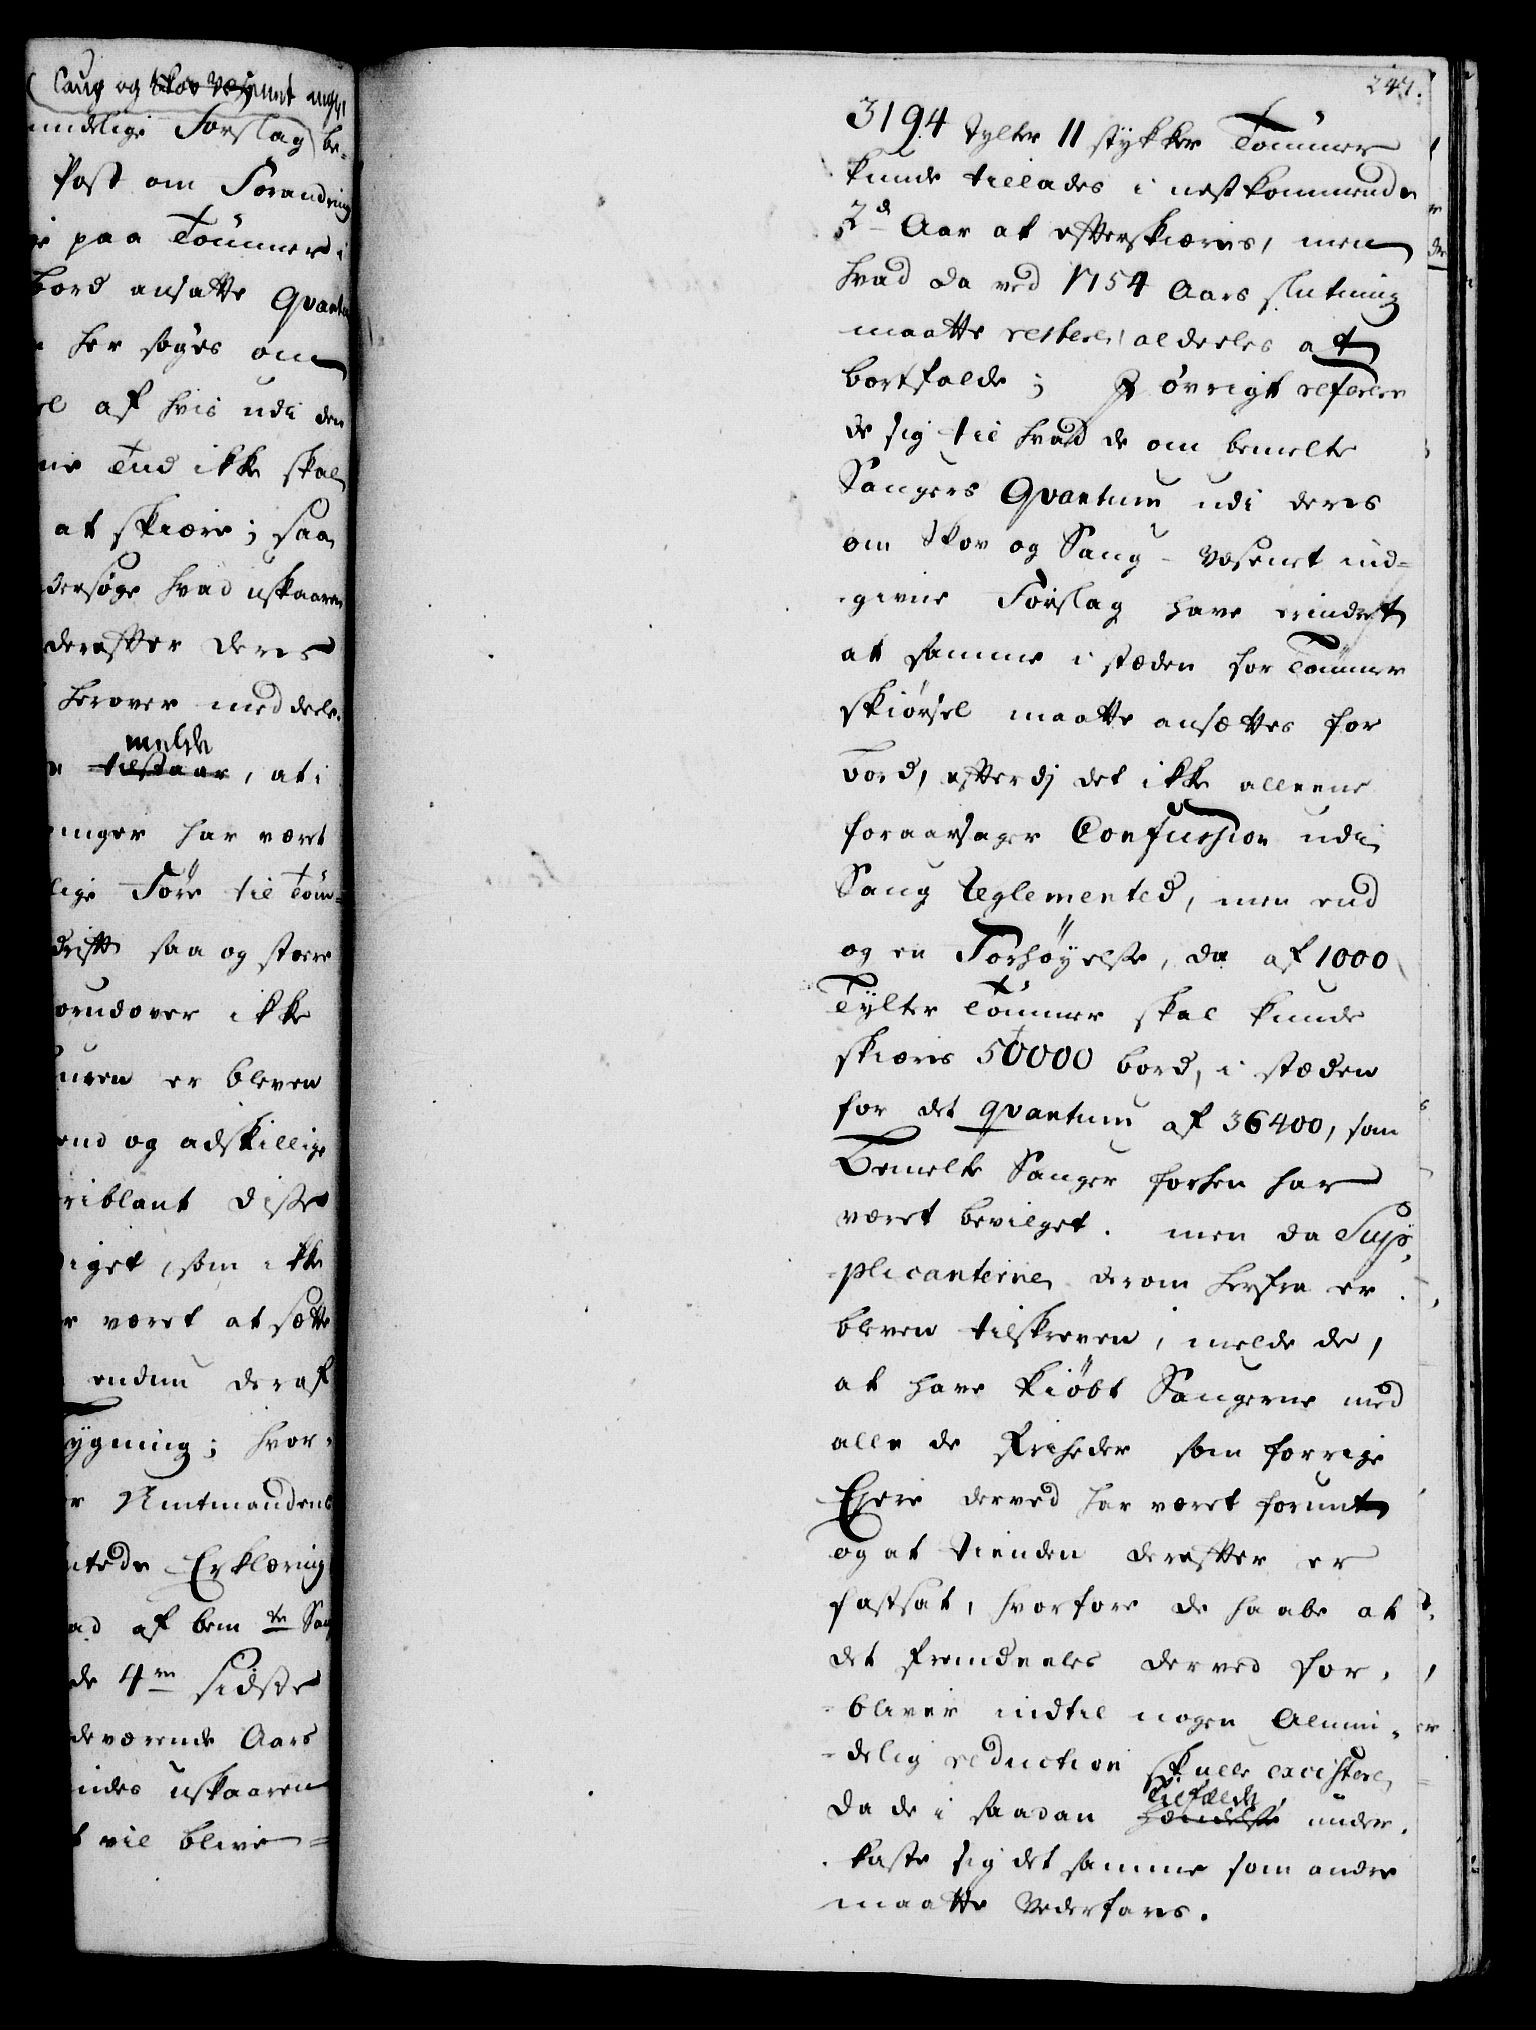 Saug og Skov Væsenet angaa
undelige Forslag be-
Post om Forandring
ge paa Tømmer i
bord ansatte Quantu
her søges om
el af hvis udi den
ne Tid ikke skal
at skiære; saa
dersøge hvad uskaaren
derefter deres
herover meddele.
melde
tilstaar, at i
inger har været
lige Føre til Tøm-
drift saa og større
orudover ikke
uren er bleven
end og adskillige
riblant disse
diget, som ikke
r været at sætte
endnu deraf
ygning; hvor-
r Amtmandens
ntede Erklæring
ad af bemte Saug
de 4re sidste
deværende Aars
indes uskaaren
t vil blive
247.
3194 Tylter 11 stykker Tømmer
kunde tillades i nestkommende
2de Aar at efterskiæres, men
hvad da ved 1754 Aars slutning
maatte restere, aldeeles at
bortfalde; I øvrigt referer
de sig til hvad de om bemelte
Saugers Qvantum udi deres
om Skov og Saug-Væsenet ind-
givne Forslag have erindret
at samme i stæden for Tømmer
skiørsel maatte ansættes for
Bord, efterdj det ikke alleene
foraarsager Confusion udi
Saug Reglemented, men end
og en Forhøyelse, da af 1000
Tylter Tømmer skal kunde
skiæres 50000 bord, i stæden
for det qvantum af 36400, som
Bemelte Sauger forhen har
været bevilget. men da Sup-
plicanterne derom herfra er
bleven tilskreven, melde de,
at have kiøbt Saugerne med
alle de Friheder som forrige
Eyere derved har været forunt
og at Tienden derefter er
fastsat, hvorfore de haabe at
det fremdeeles derved for-
bliver indtil nogen Almin-
delig reduction skulle existere,
tilfælde
da de i saadan hændelse under-
kaste sig det samme som andre
maatte vederfares.